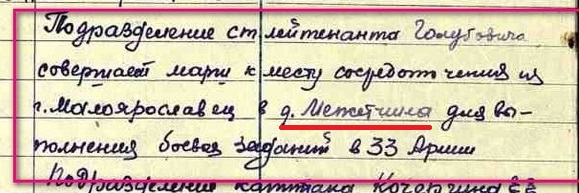 Подразделение ст лейтенанта Голубовича
совершает марш к месту сосредоточения из
г. Малоярославец в д. Межетчина для вы-
полнения боевых заданий в 33 Армии
Подразделение капитана Кочергина